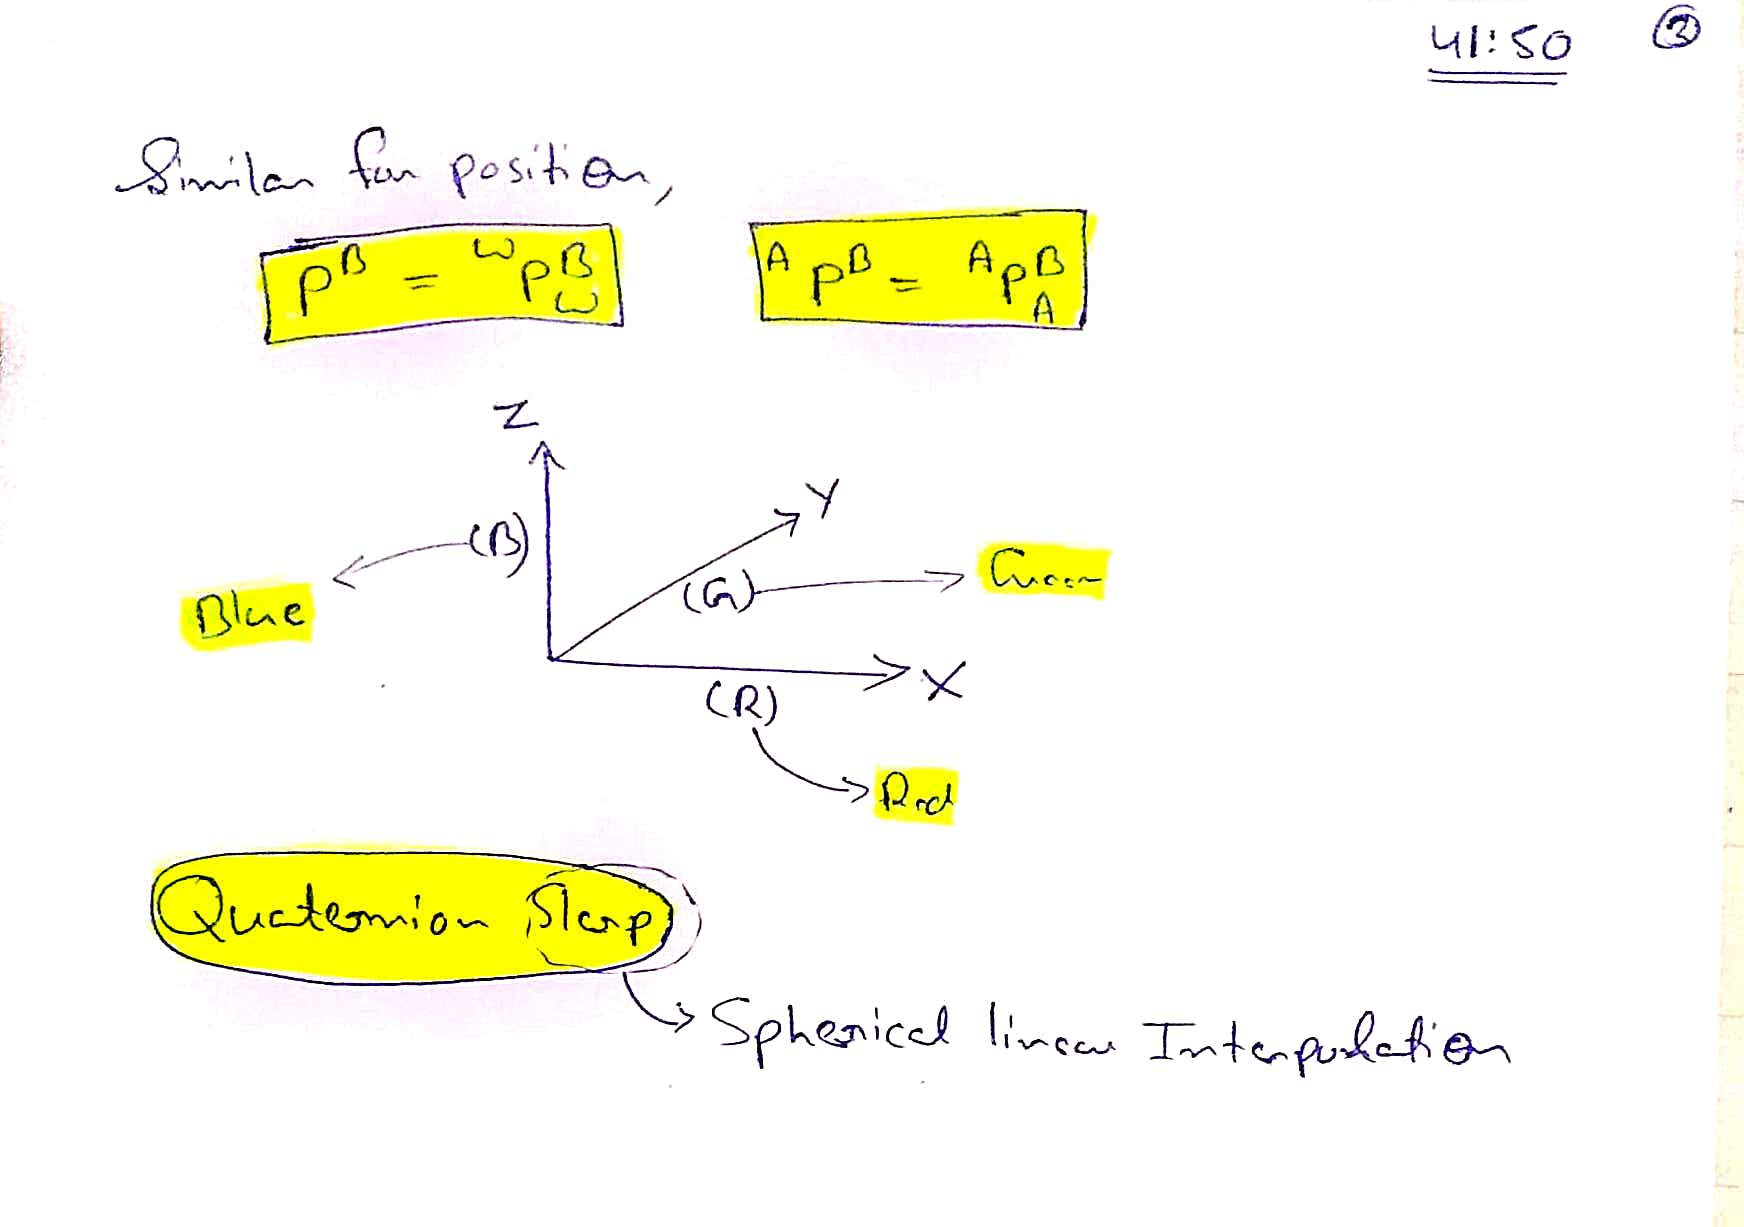 41:50 ③
Similar for position,
p^B = ^W p^B_W
^A p^B = ^A p^B_A
Z
Y
(B)
(G)
Green
Blue
X
(R)
Red
Quaternion Slerp
Spherical linear Interpolation